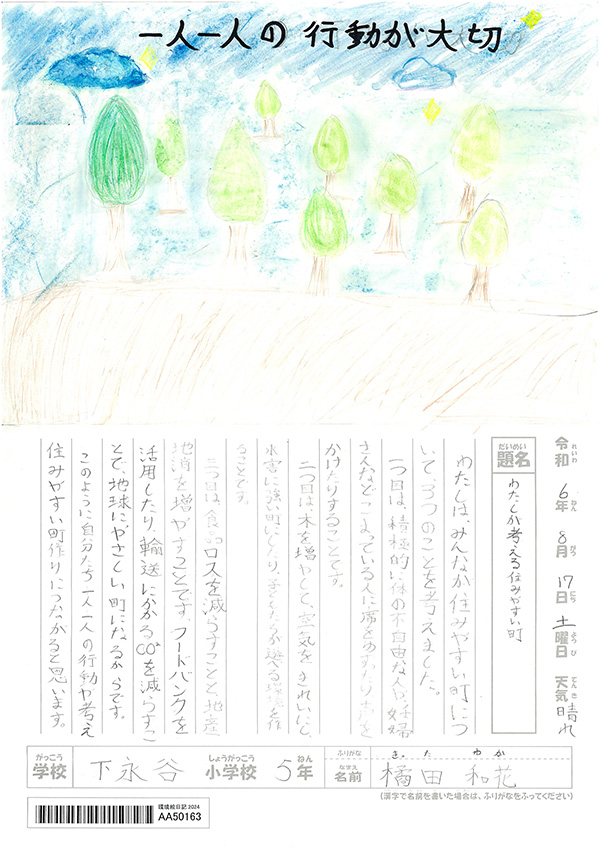 一人一人の行動が大切
令和6年8月17日土曜日 天気晴れ
れいわ ねん がつ にち ようび てんき
だいめい
題名
わたしが考える住みやすい町
わたしは、みんなが住みやすい町につ
いて、3つのことを考えました。
一つ目は、積極的に体の不自由な人や、妊婦
さんなどこまっている人に席をゆずったり声を
かけたりすることです。
二つ目は、木を増やして、空気をきれいにし、
水害に強い町にしたり、子どもたちが遊べる場所を作
ることです。
三つ目は、食品ロスを減らすことと、地産
地消を増やすことです。フードバンクを
活用したり、輸送にかかるCO²を減らすこ
とで、地球にやさしい町になるからです。
このように自分たち一人一人の行動や考え
が住みやすい町作りにつながると思います。
がっこう
学校
下永谷
しょうがっこう
小学校
5年
ねん
ふりがな
なまえ
名前
きった ゆか
橘田 和花
(漢字で名前を書いた場合は、ふりがなをふってください)
環境絵日記2024
AA50163